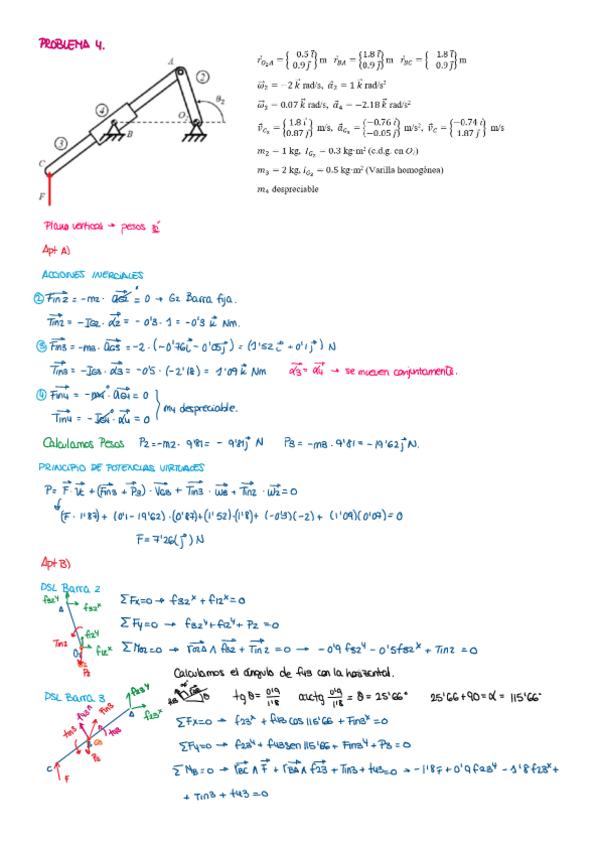 PROBLEMA 4.
A
2
4
θ₂
O₂
B
3
C
F
r⃗_O₂A = { 0.5 i⃗ 0.9 j⃗ } m r⃗_BA = { 1.8 i⃗ 0.9 j⃗ } m r⃗_BC = { 1.8 i⃗ 0.9 j⃗ } m
ω⃗₂ = −2 k⃗ rad/s, α⃗₂ = 1 k⃗ rad/s²
ω⃗₃ = 0.07 k⃗ rad/s, α⃗₄ = −2.18 k⃗ rad/s²
v⃗_G₃ = { 1.8 i⃗ 0.87 j⃗ } m/s, a⃗_G₃ = { −0.76 i⃗ −0.05 j⃗ } m/s², v⃗_C = { −0.74 i⃗ 1.87 j⃗ } m/s
m₂ = 1 kg, I_G₂ = 0.3 kg·m² (c.d.g. en O₂)
m₃ = 2 kg, I_G₃ = 0.5 kg·m² (Varilla homogénea)
m₄ despreciable
Plano vertical → pesos sí
Apt A)
ACCIONES INERCIALES
② Fin2 = −m2 · aG2 = 0 → G2 Barra fija.
Tin2 = −IG2 · α2 = −0'3 · 1 = −0'3 k Nm.
③ Fin3 = −m3 · aG3 = −2 · (−0'76i −0'05j) = (1'52 i + 0'1 j) N
Tin3 = −IG3 · α3 = −0'5 · (−2'18) = 1'09 k Nm α3 = α4 → se mueven conjuntamente.
④ Fin4 = −m4 · aG4 = 0
Tin4 = −IG4 · α4 = 0
m4 despreciable.
Calculamos Pesos P2 = −m2 · 9'81 = −9'81 j N P3 = −m3 · 9'81 = −19'62 j N.
PRINCIPIO DE POTENCIAS VIRTUALES
P = F · vc + (Fin3 + P3) · VG3 + Tin3 · ω3 + Tin2 · ω2 = 0
(F · 1'87) + (0'1 − 19'62) · (0'87) + (1'52) · (1'8) + (−0'3)(−2) + (1'09)(0'07) = 0
F = 7'26 (j) N
Apt B)
DSL Barra 2
ΣFx=0 → f32ˣ + f12ˣ = 0
ΣFy=0 → f32ʸ + f12ʸ + P2 = 0
ΣM02=0 → r02A ∧ f32 + Tin2 = 0 → −0'9 f32ʸ − 0'5 f32ˣ + Tin2 = 0
Calculamos el ángulo de f43 con la horizontal.
DSL Barra 3
tg θ = 0'9/1'8 arctg 0'9/1'8 = θ = 25'66° 25'66 + 90 = α = 115'66°
ΣFx=0 → f23ˣ + f43 cos 115'66 + Fin3ˣ = 0
ΣFy=0 → f23ʸ + f43 sen 115'66 + Fin3ʸ + P3 = 0
ΣMB=0 → rBC ∧ F + rBA ∧ f23 + Tin3 + t43 = 0 → −1'8F + 0'9 f23ʸ − 1'8 f23ˣ +
+ Tin3 + t43 = 0